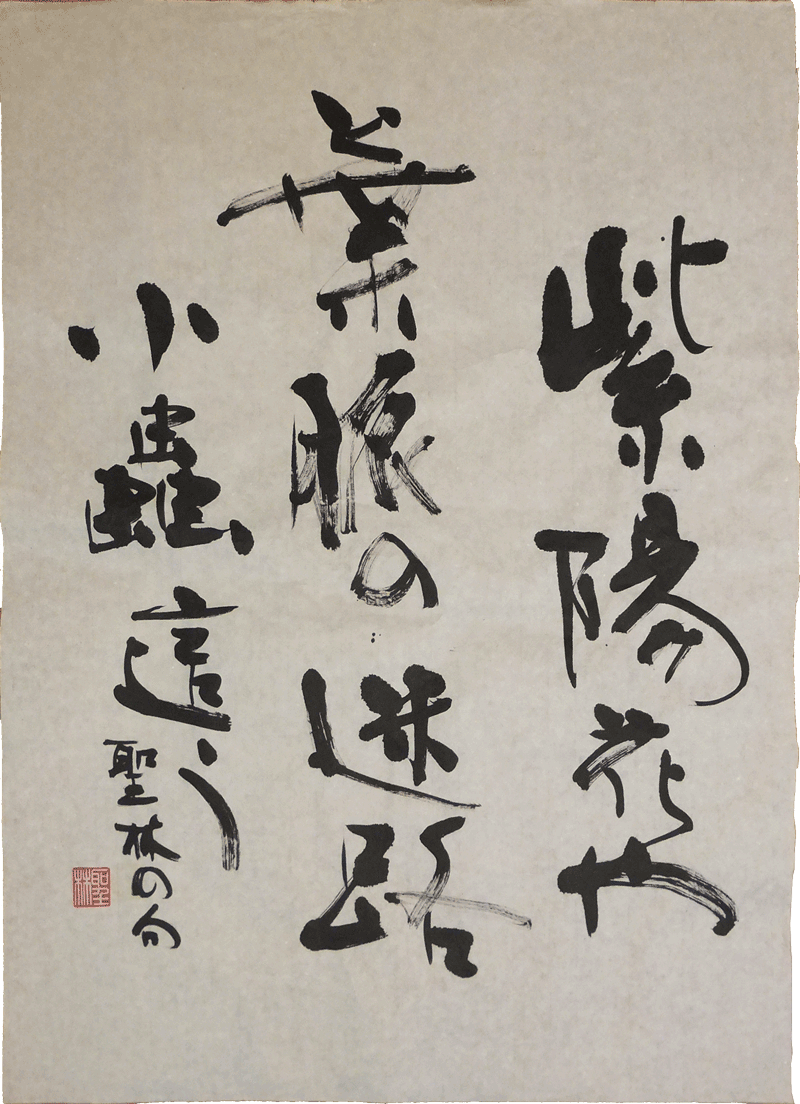 紫陽花や
葉脈の迷路
小蟲這う
聖林の句
聖林